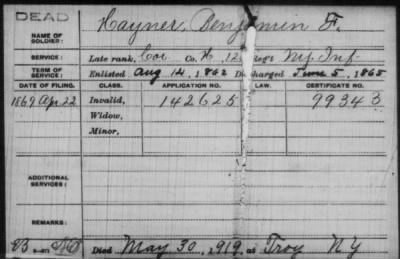 DEAD
NAME OF SOLDIER: Hayner, Benjamin F.
SERVICE: Late rank, Cor Co. H, 12 Reg't NY Inf
TERM OF SERVICE: Enlisted Aug 14, 1862 Discharged June 5, 1865
DATE OF FILING. CLASS. APPLICATION NO. LAW. CERTIFICATE NO.
1869 Apr 22 Invalid, 142625 99343
Widow,
Minor,
ADDITIONAL SERVICES:
REMARKS:
Died May 30, 1919, at Troy NY